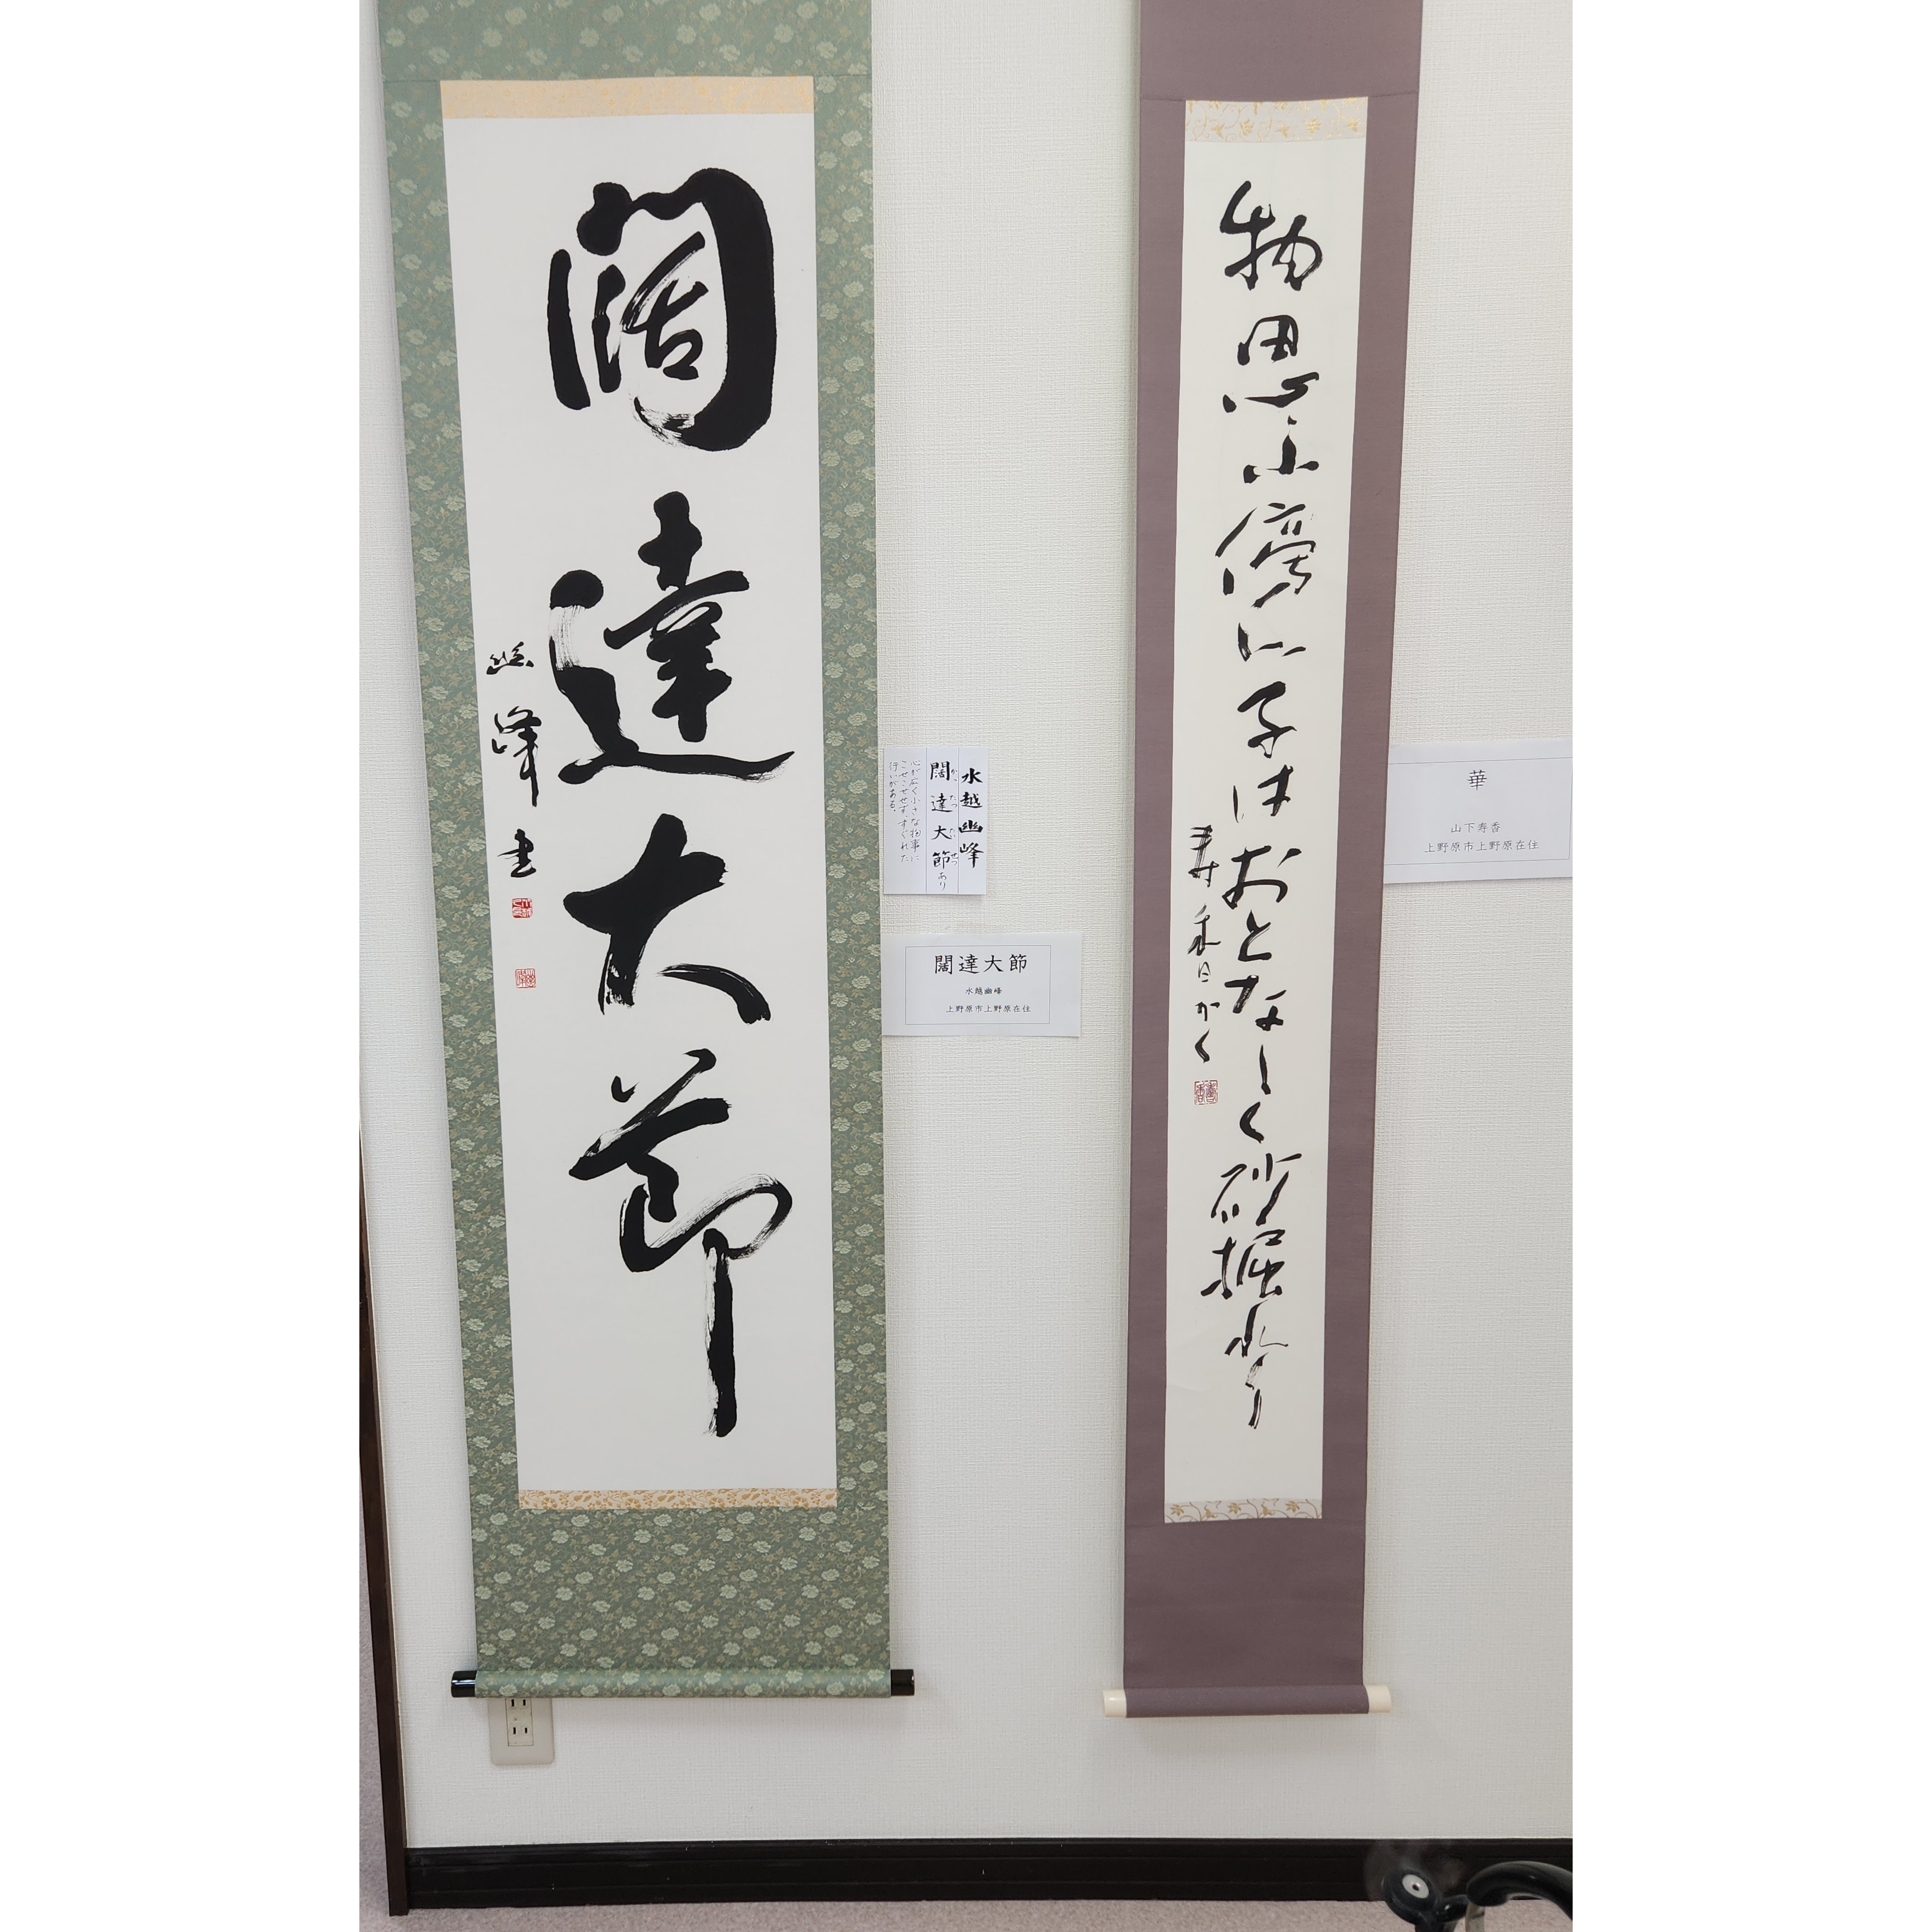 闊達大節
幽峰書
水越幽峰
闊達大節あり
かったつたいせつ
心が広く小さな物事に
こせこせせず、すぐれた
行いがある。
闊達大節
水越幽峰
上野原市上野原在住
物思ふ傍に子はおとなしく砂掘れり
寿香かく
華
山下寿香
上野原市上野原在住